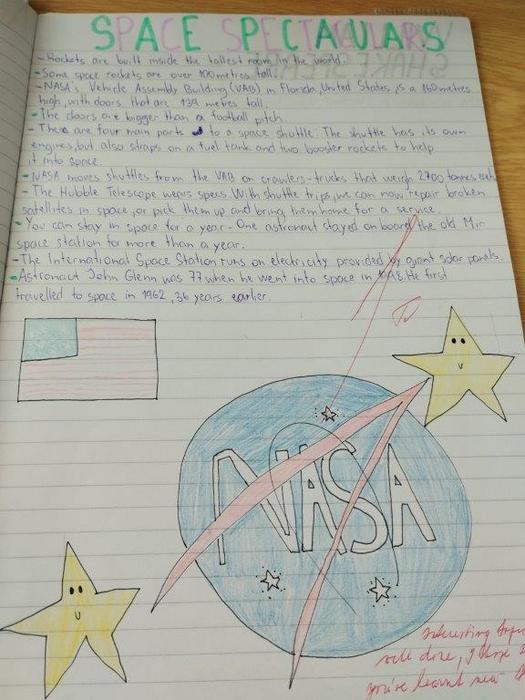 SPACE SPECTACULARS
- Rockets are built inside the tallest room in the world.
- Some space rockets are over 100 metres tall.
- NASA's, Vehicle Assembly Building (VAB) in Florida, United States, is a 160 metres
high, with doors that are 139 metres tall.
- The doors are bigger than a football pitch.
- There are four main parts to a space shuttle. The shuttle has its own
engines, but also straps on a fuel tank and two booster rockets to help
it into space.
- NASA moves shuttles from the VAB on crawlers-trucks that weigh 2700 tonnes each.
- The Hubble Telescope wears specs. With shuttle trips, we can now repair broken
satellites in space, or pick them up and bring them home for a service.
- You can stay in space for a year - One astronaut stayed on board the old Mir
space station for more than a year.
- The International Space Station runs on electricity provided by giant solar panels.
- Astronaut John Glenn was 77 when he went into space in 1998. He first
travelled to space in 1962, 36 years earlier.
NASA
interesting
well done, I hope
you've learnt new